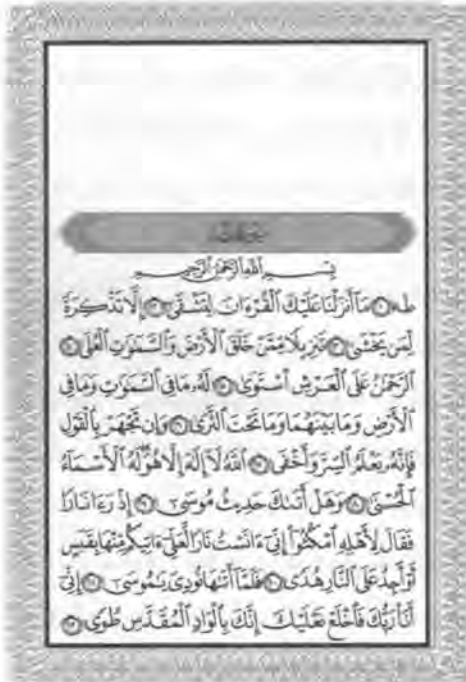 بِسْمِ ٱللَّهِ ٱلرَّحْمَٰنِ ٱلرَّحِيمِ
طه مَآ أَنزَلْنَا عَلَيْكَ ٱلْقُرْءَانَ لِتَشْقَىٰٓ إِلَّا تَذْكِرَةً
لِّمَن يَخْشَىٰ تَنزِيلًا مِّمَّنْ خَلَقَ ٱلْأَرْضَ وَٱلسَّمَٰوَٰتِ ٱلْعُلَى
ٱلرَّحْمَٰنُ عَلَى ٱلْعَرْشِ ٱسْتَوَىٰ لَهُۥ مَا فِى ٱلسَّمَٰوَٰتِ وَمَا فِى
ٱلْأَرْضِ وَمَا بَيْنَهُمَا وَمَا تَحْتَ ٱلثَّرَىٰ وَإِن تَجْهَرْ بِٱلْقَوْلِ
فَإِنَّهُۥ يَعْلَمُ ٱلسِّرَّ وَأَخْفَى ٱللَّهُ لَآ إِلَٰهَ إِلَّا هُوَ لَهُ ٱلْأَسْمَآءُ
ٱلْحُسْنَىٰ وَهَلْ أَتَىٰكَ حَدِيثُ مُوسَىٰٓ إِذْ رَءَا نَارًا
فَقَالَ لِأَهْلِهِ ٱمْكُثُوٓا۟ إِنِّىٓ ءَانَسْتُ نَارًا لَّعَلِّىٓ ءَاتِيكُم مِّنْهَا بِقَبَسٍ
أَوْ أَجِدُ عَلَى ٱلنَّارِ هُدًى فَلَمَّآ أَتَىٰهَا نُودِىَ يَٰمُوسَىٰٓ إِنِّىٓ
أَنَا۠ رَبُّكَ فَٱخْلَعْ نَعْلَيْكَ إِنَّكَ بِٱلْوَادِ ٱلْمُقَدَّسِ طُوًى